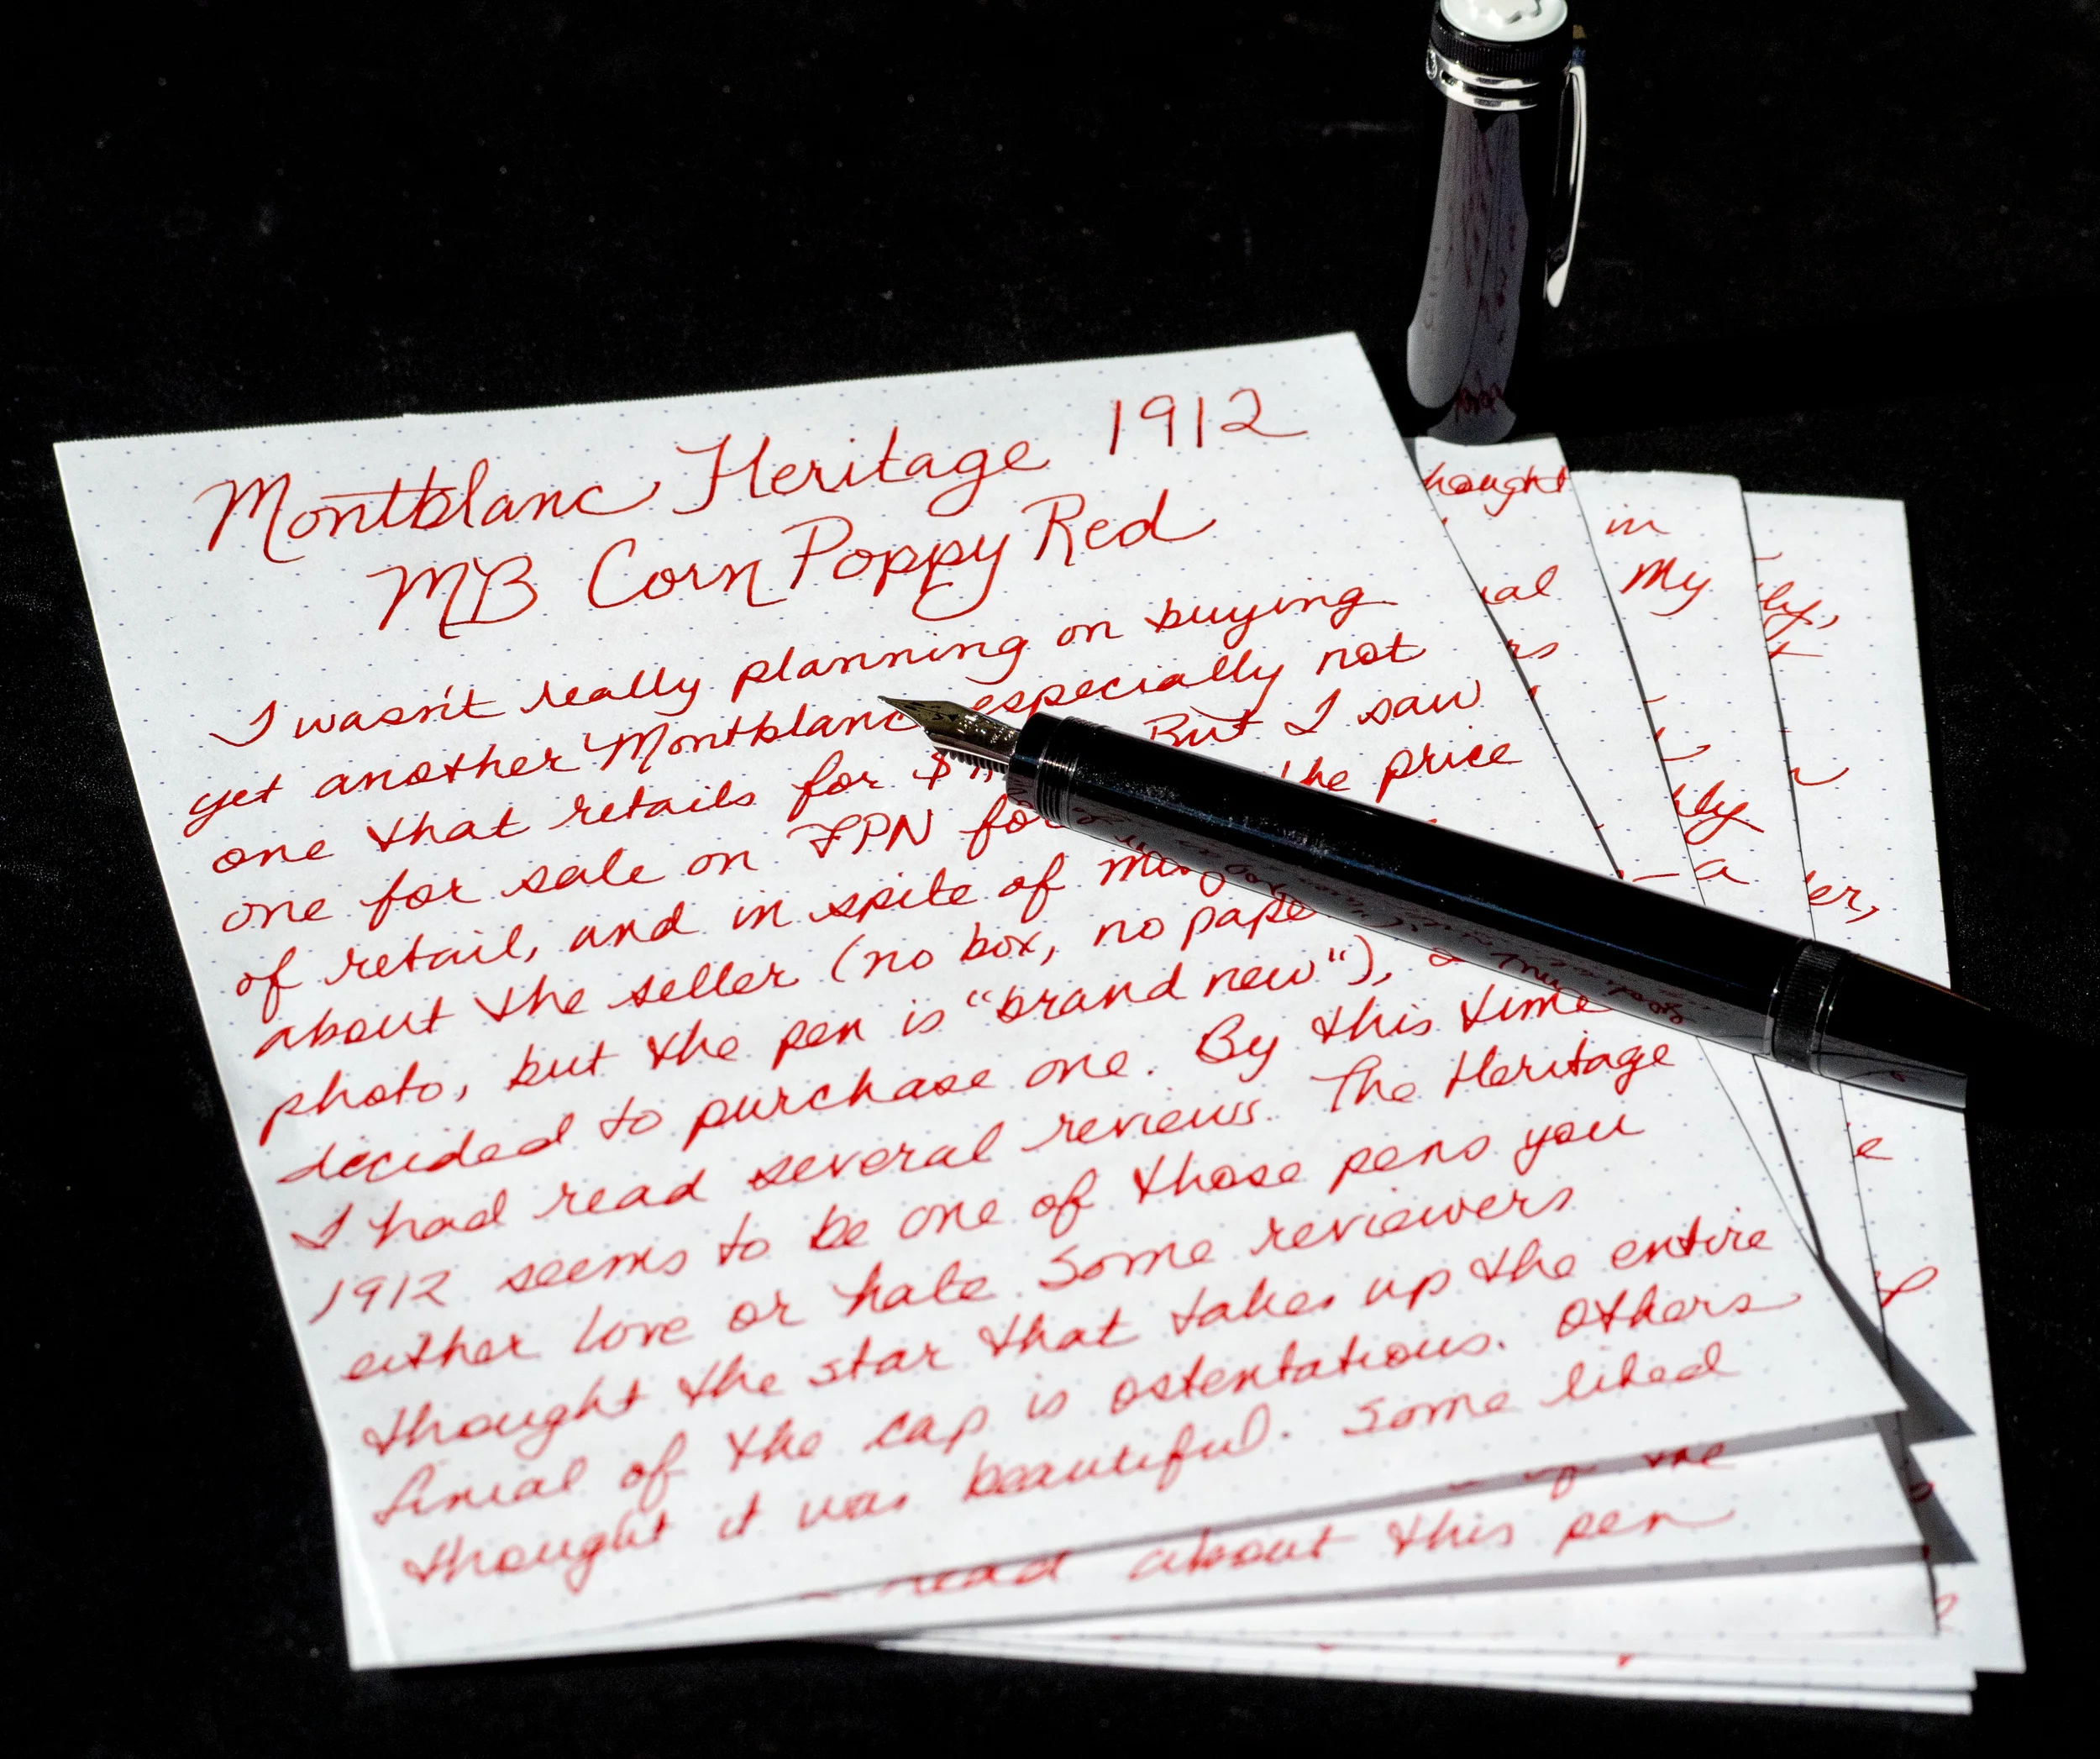 Montblanc Heritage 1912
MB Corn Poppy Red
I wasn't really planning on buying
yet another Montblanc especially not
one that retails for $ But I saw
one for sale on FPN for the price
of retail, and in spite of
about the seller (no box, no
photo, but the pen is "brand new"), I
decided to purchase one. By this time
I had read several reviews. The Heritage
1912 seems to be one of those pens you
either love or hate. Some reviewers
thought the star that takes up the entire
finial of the cap is ostentatious. Others
thought it was beautiful. Some liked
read about this pen
in
My
a